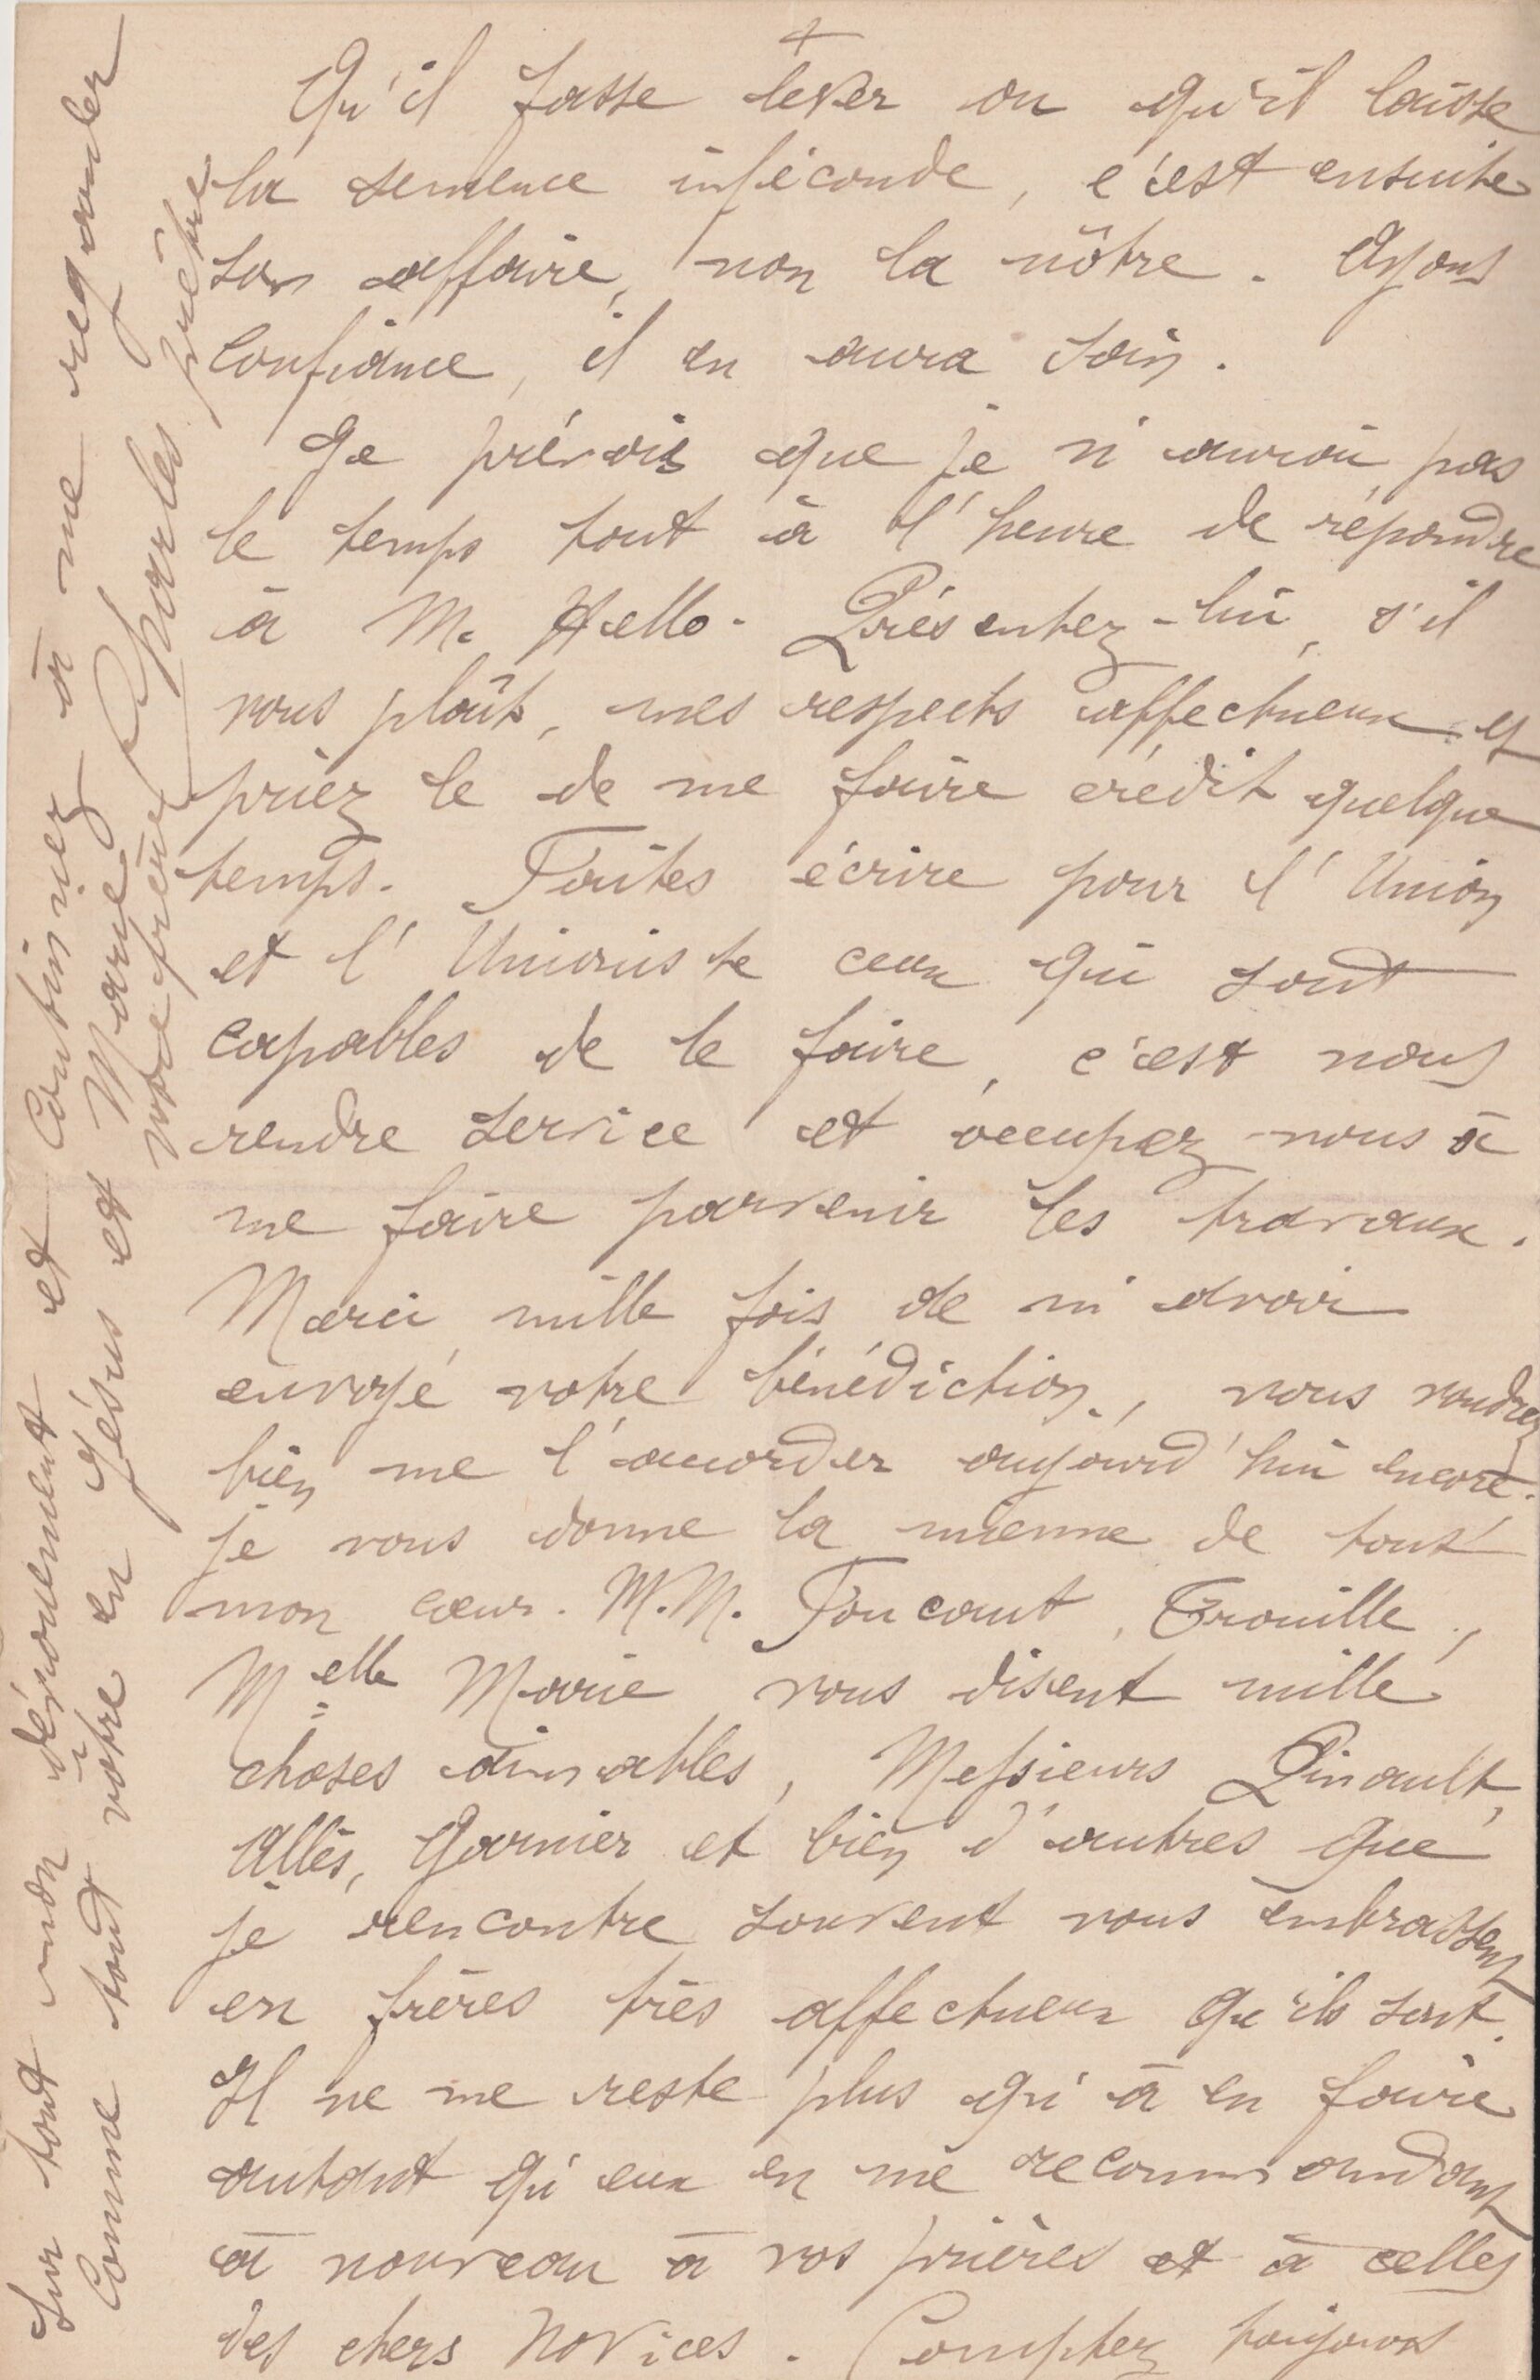 +
Qu'il fasse lever ou qu'il laisse
la semence inféconde, c'est ensuite
son affaire, non la nôtre. Ayons
confiance, il en aura soin.
Je prévois que je n'aurai pas
le temps tout à l'heure de répondre
à M. Hello. Présentez-lui, s'il
vous plaît, mes respects affectueux et
priez le de me faire crédit quelque
temps. Faites écrire pour l'Union
et l'Unioniste ceux qui sont
capables de le faire, c'est nous
rendre service et occupez-vous à
me faire parvenir les travaux.
Merci mille fois de m'avoir
envoyé votre bénédiction, vous voudrez
bien me l'accorder aujourd'hui encore.
je vous donne la mienne de tout
mon cœur. M.M. Foucaut, Trouille,
Melle Marie vous disent mille
choses aimables, Messieurs Pinault,
Allès, Garnier et bien d'autres que
je rencontre souvent vous embrassent
en frères très affectueux qu'ils sont.
Il ne me reste plus qu'à en faire
autant qu'eux en me recommandant
à nouveau à vos prières et à celles
des chers Novices. Comptez toujours
sur tout mon dévouement et continuez à me regarder
comme tout vôtre en Jésus et Marie Charles prêtre
votre frère